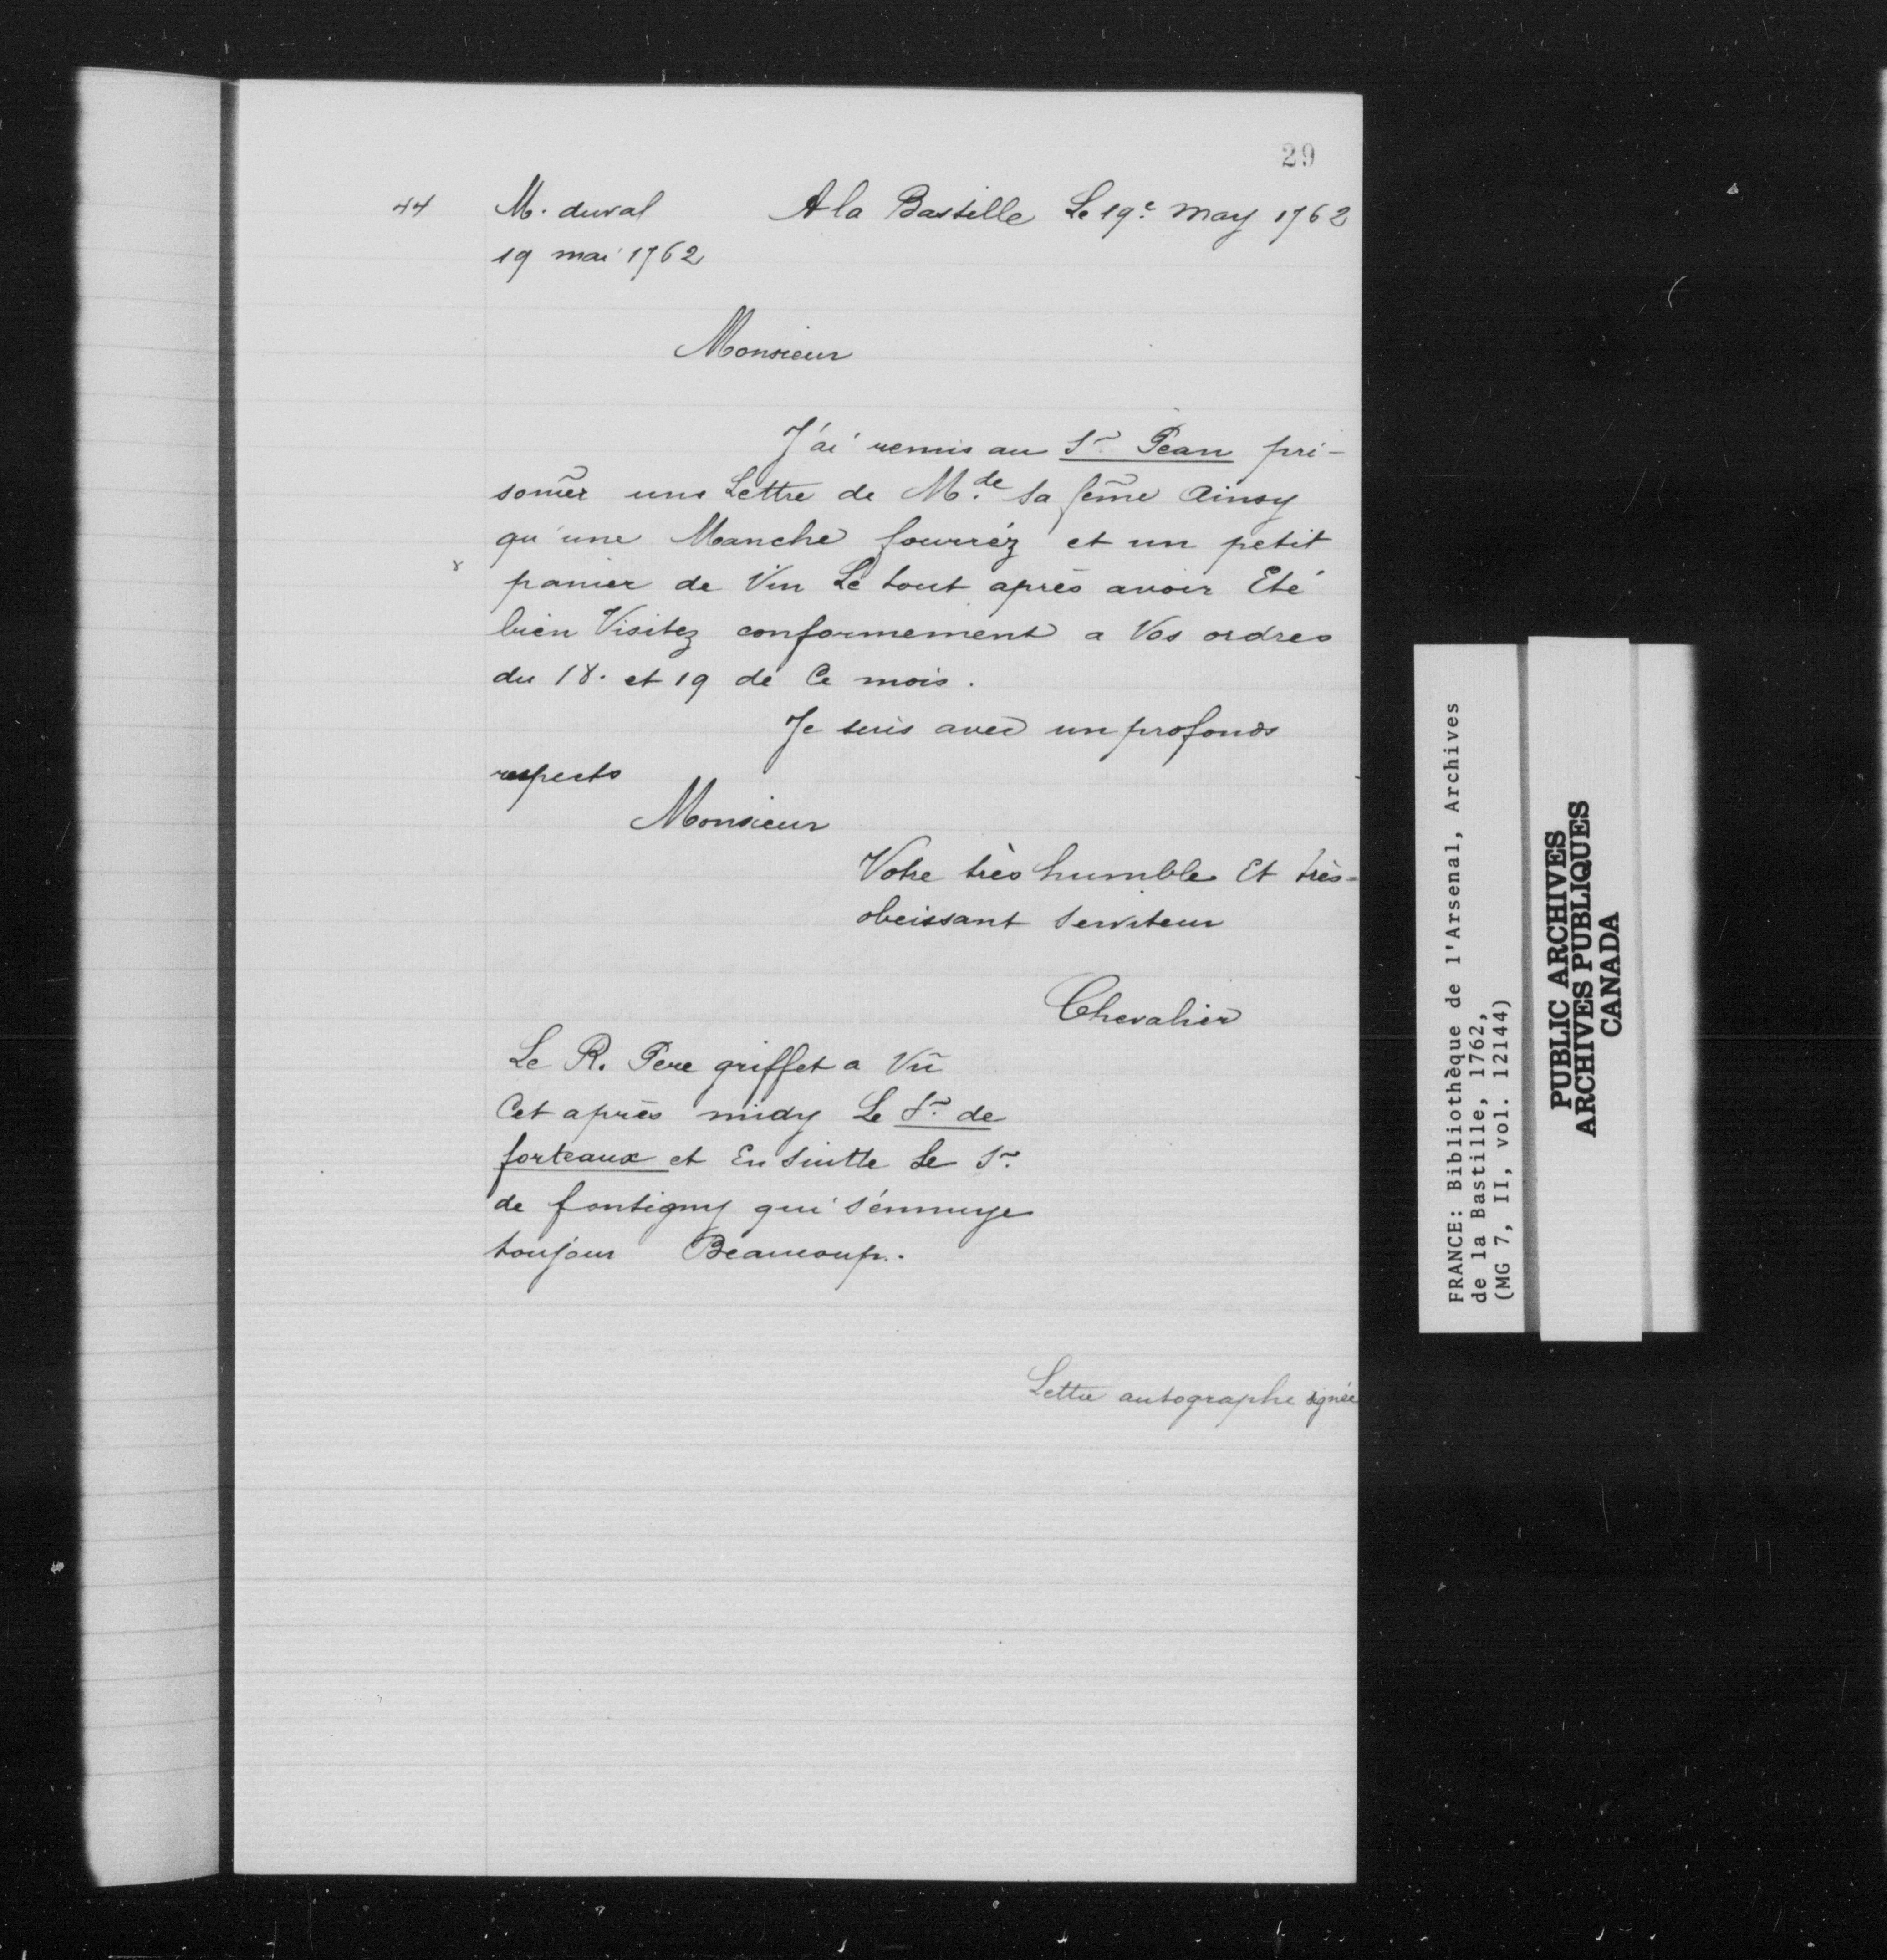 29
44 M. duval A la Bastille Le 19e may 1762
19 mai 1762
Monsieur
J'ai remis au Sr Pean pri-
soñier une Lettre de M.de sa feme Ainsy
qu'une Manche fourréz et un petit
panier de Vin Le tout après avoir Eté
bien Visitez conformement a Vos ordres
du 18. et 19 de Ce mois.
Je suis avec un profonds
respects
Monsieur
Votre très humble Et très-
obeissant Serviteur
Chevalier
Le R. Pere griffet a Vû
Cet après midy Le Sr de
forteaux et En Suitte Le Sr
de fontigny qui s'énnuye
toujour Beaucoup.
Lettre autographe signée
FRANCE: Bibliothèque de l'Arsenal, Archives
de la Bastille, 1762,
(MG 7, II, vol. 12144)
PUBLIC ARCHIVES
ARCHIVES PUBLIQUES
CANADA